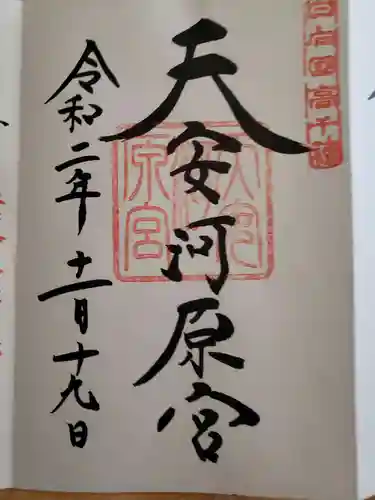 日向國高千穂
天安河原宮
令和二年十一月十九日